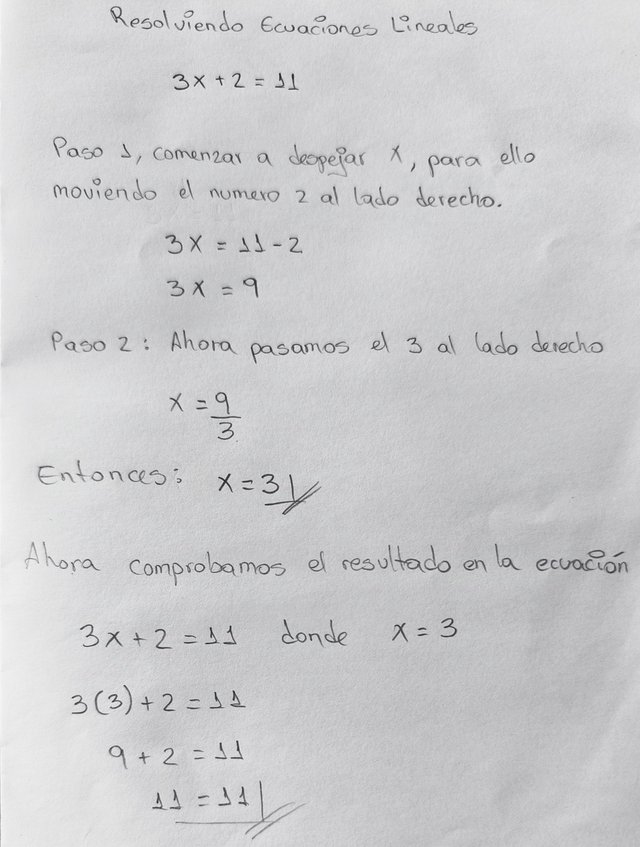 Resolviendo Ecuaciones Lineales
3x + 2 = 11
Paso 1, comenzar a despejar x, para ello
moviendo el numero 2 al lado derecho.
3x = 11 - 2
3x = 9
Paso 2: Ahora pasamos el 3 al lado derecho
x = 9/3
Entonces: x = 3
Ahora comprobamos el resultado en la ecuación
3x + 2 = 11 donde x = 3
3(3) + 2 = 11
9 + 2 = 11
11 = 11